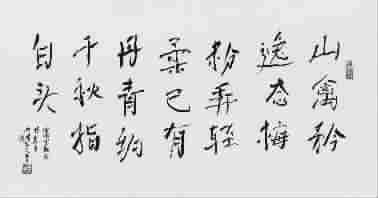 山禽矜
逸态梅
粉弄轻
柔已有
丹青约
千秋指
白头